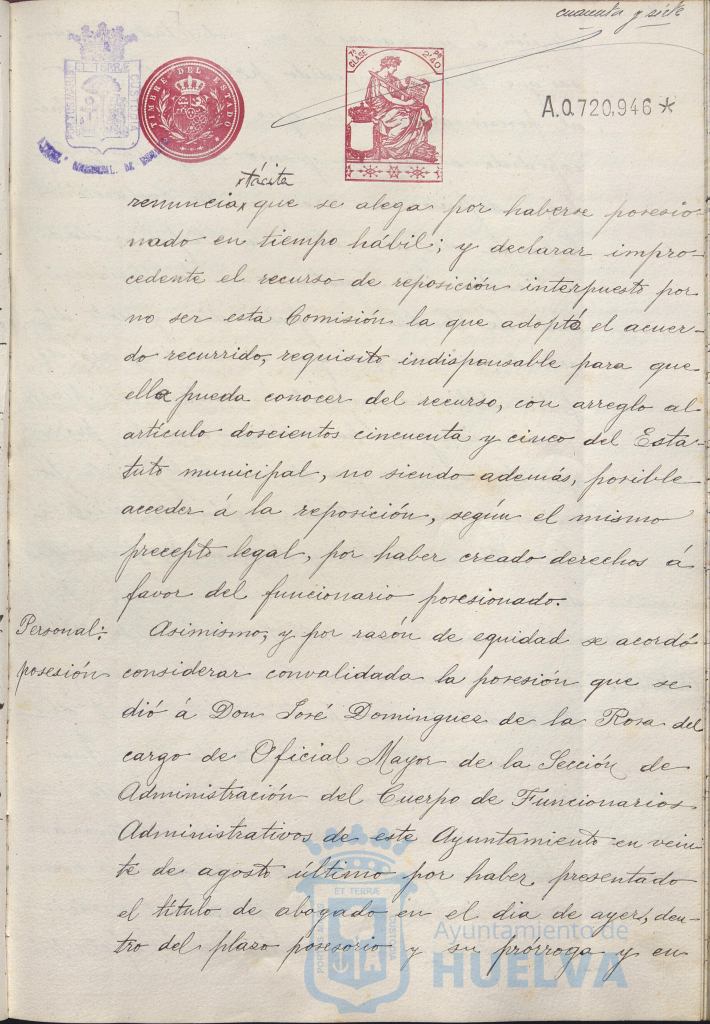 cuarenta y siete
PORTUS MARIS ET TERRÆ CUSTODIA
TIMBRE DEL ESTADO
7ª CLASE
2'40
A.0.720,946*
tácita
renuncia x que se alega por haberse posesio-
nado en tiempo hábil; y declarar impro-
cedente el recurso de reposición interpuesto por
no ser esta Comisión la que adoptó el acuer-
do recurrido, requisito indispensable para que
ella pueda conocer del recurso, con arreglo al
artículo doscientos cincuenta y cinco del Esta-
tuto municipal, no siendo además, posible
acceder á la reposición, según el mismo
precepto legal, por haber creado derechos á
favor del funcionario posesionado.
Personal:
posesión
Asimismo, y por razón de equidad se acordó
considerar convalidada la posesión que se
dió á Don José Dominguez de la Rosa del
cargo de Oficial Mayor de la Sección de
Administración del Cuerpo de Funcionarios
Administrativos de este Ayuntamiento en vein-
te de agosto último por haber presentado
el título de abogado en el dia de ayer, den-
tro del plazo posesorio y su prórroga y en
PORTUS MARIS ET TERRÆ CUSTODIA
Ayuntamiento de
HUELVA